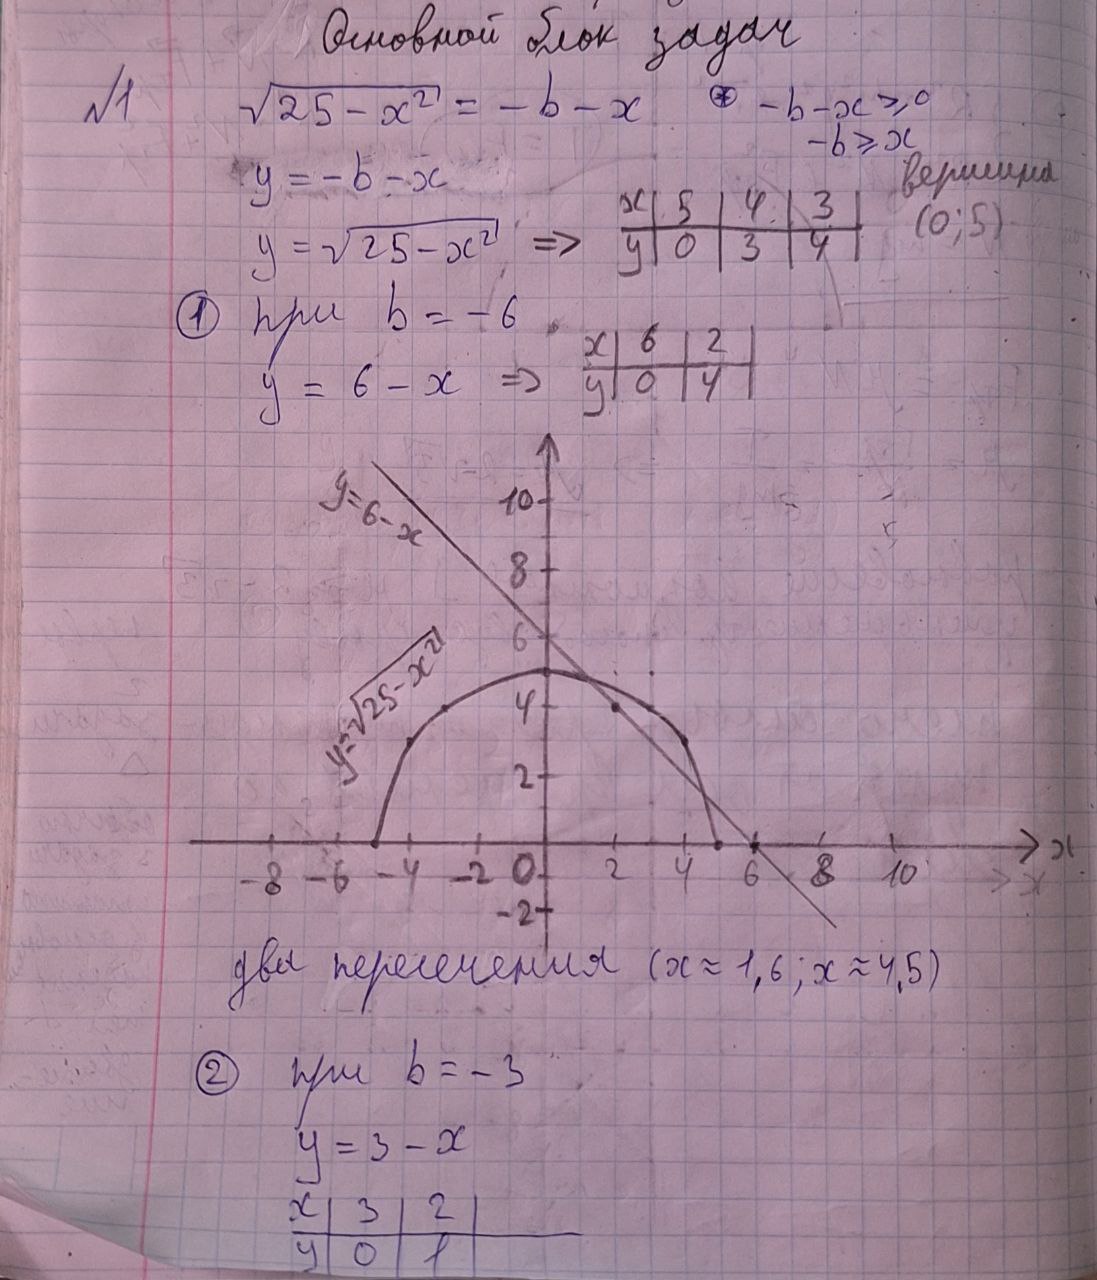 Основной блок задач
№1 √25-x² = -b-x * -b-x≥0
-b≥x
y = -b-x
вершина
(0;5)
y = √25-x² => x | 5 | 4 | 3
y | 0 | 3 | 4
① при b = -6
y = 6-x => x | 6 | 2
y | 0 | 4
y=6-x
10
8
6
y=√25-x²
4
2
-8 -6 -4 -2 0 2 4 6 8 10 x
-2
два пересечения (x≈1,6; x≈4,5)
② при b = -3
y = 3-x
x | 3 | 2
y | 0 | 1